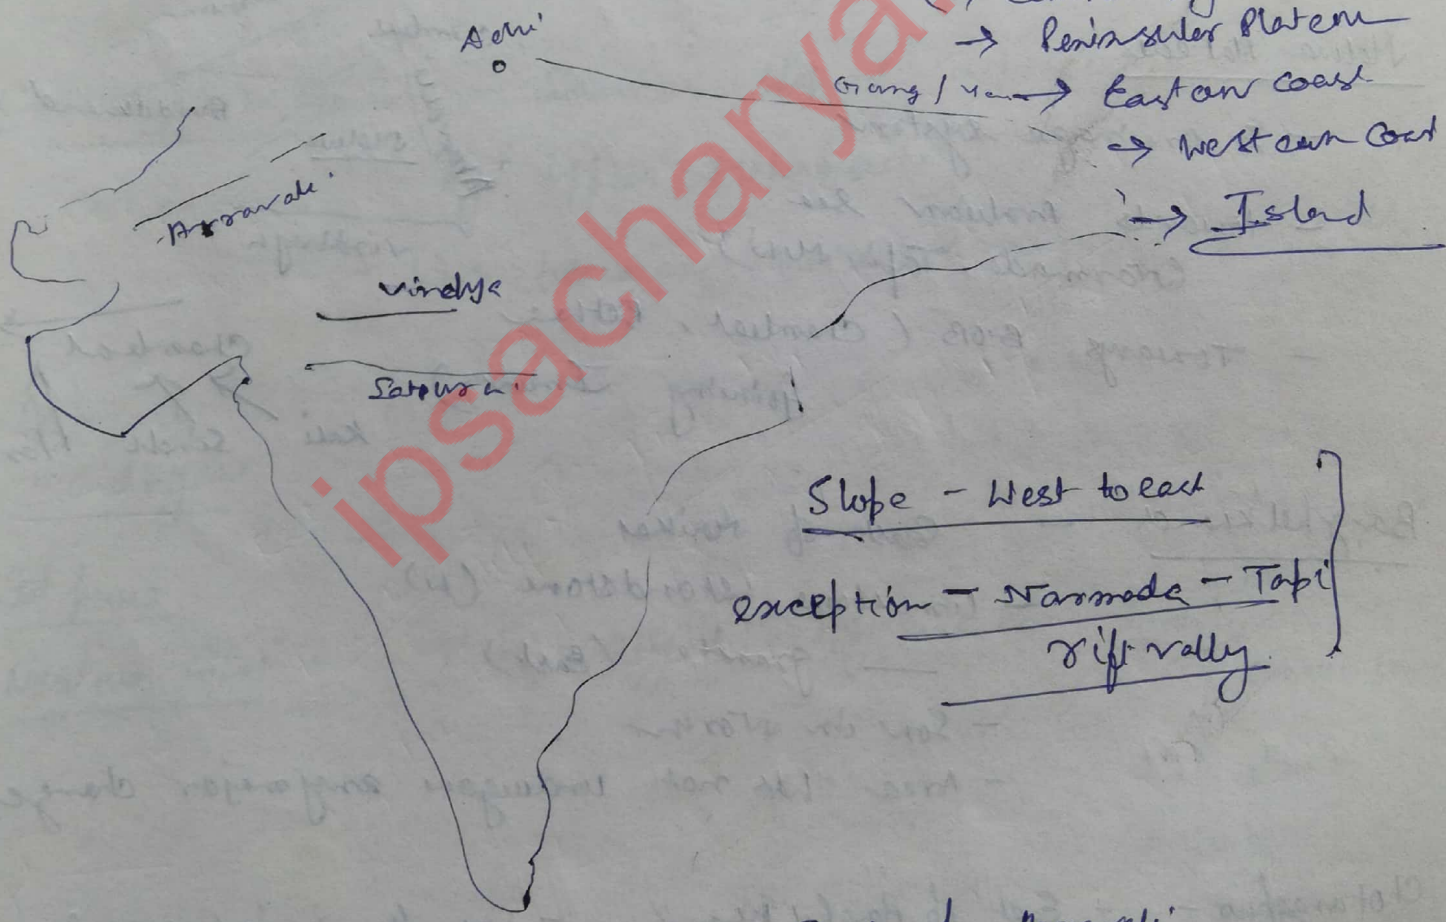 Delhi
→ Peninsular Plateau
Gang / Yam → Eastern Coast
→ Western Coast
→ Island
Arravali
Vindhya
Satpura
Slope - West to east
exception - Narmada - Tapi
rift valley
ipsacharya.